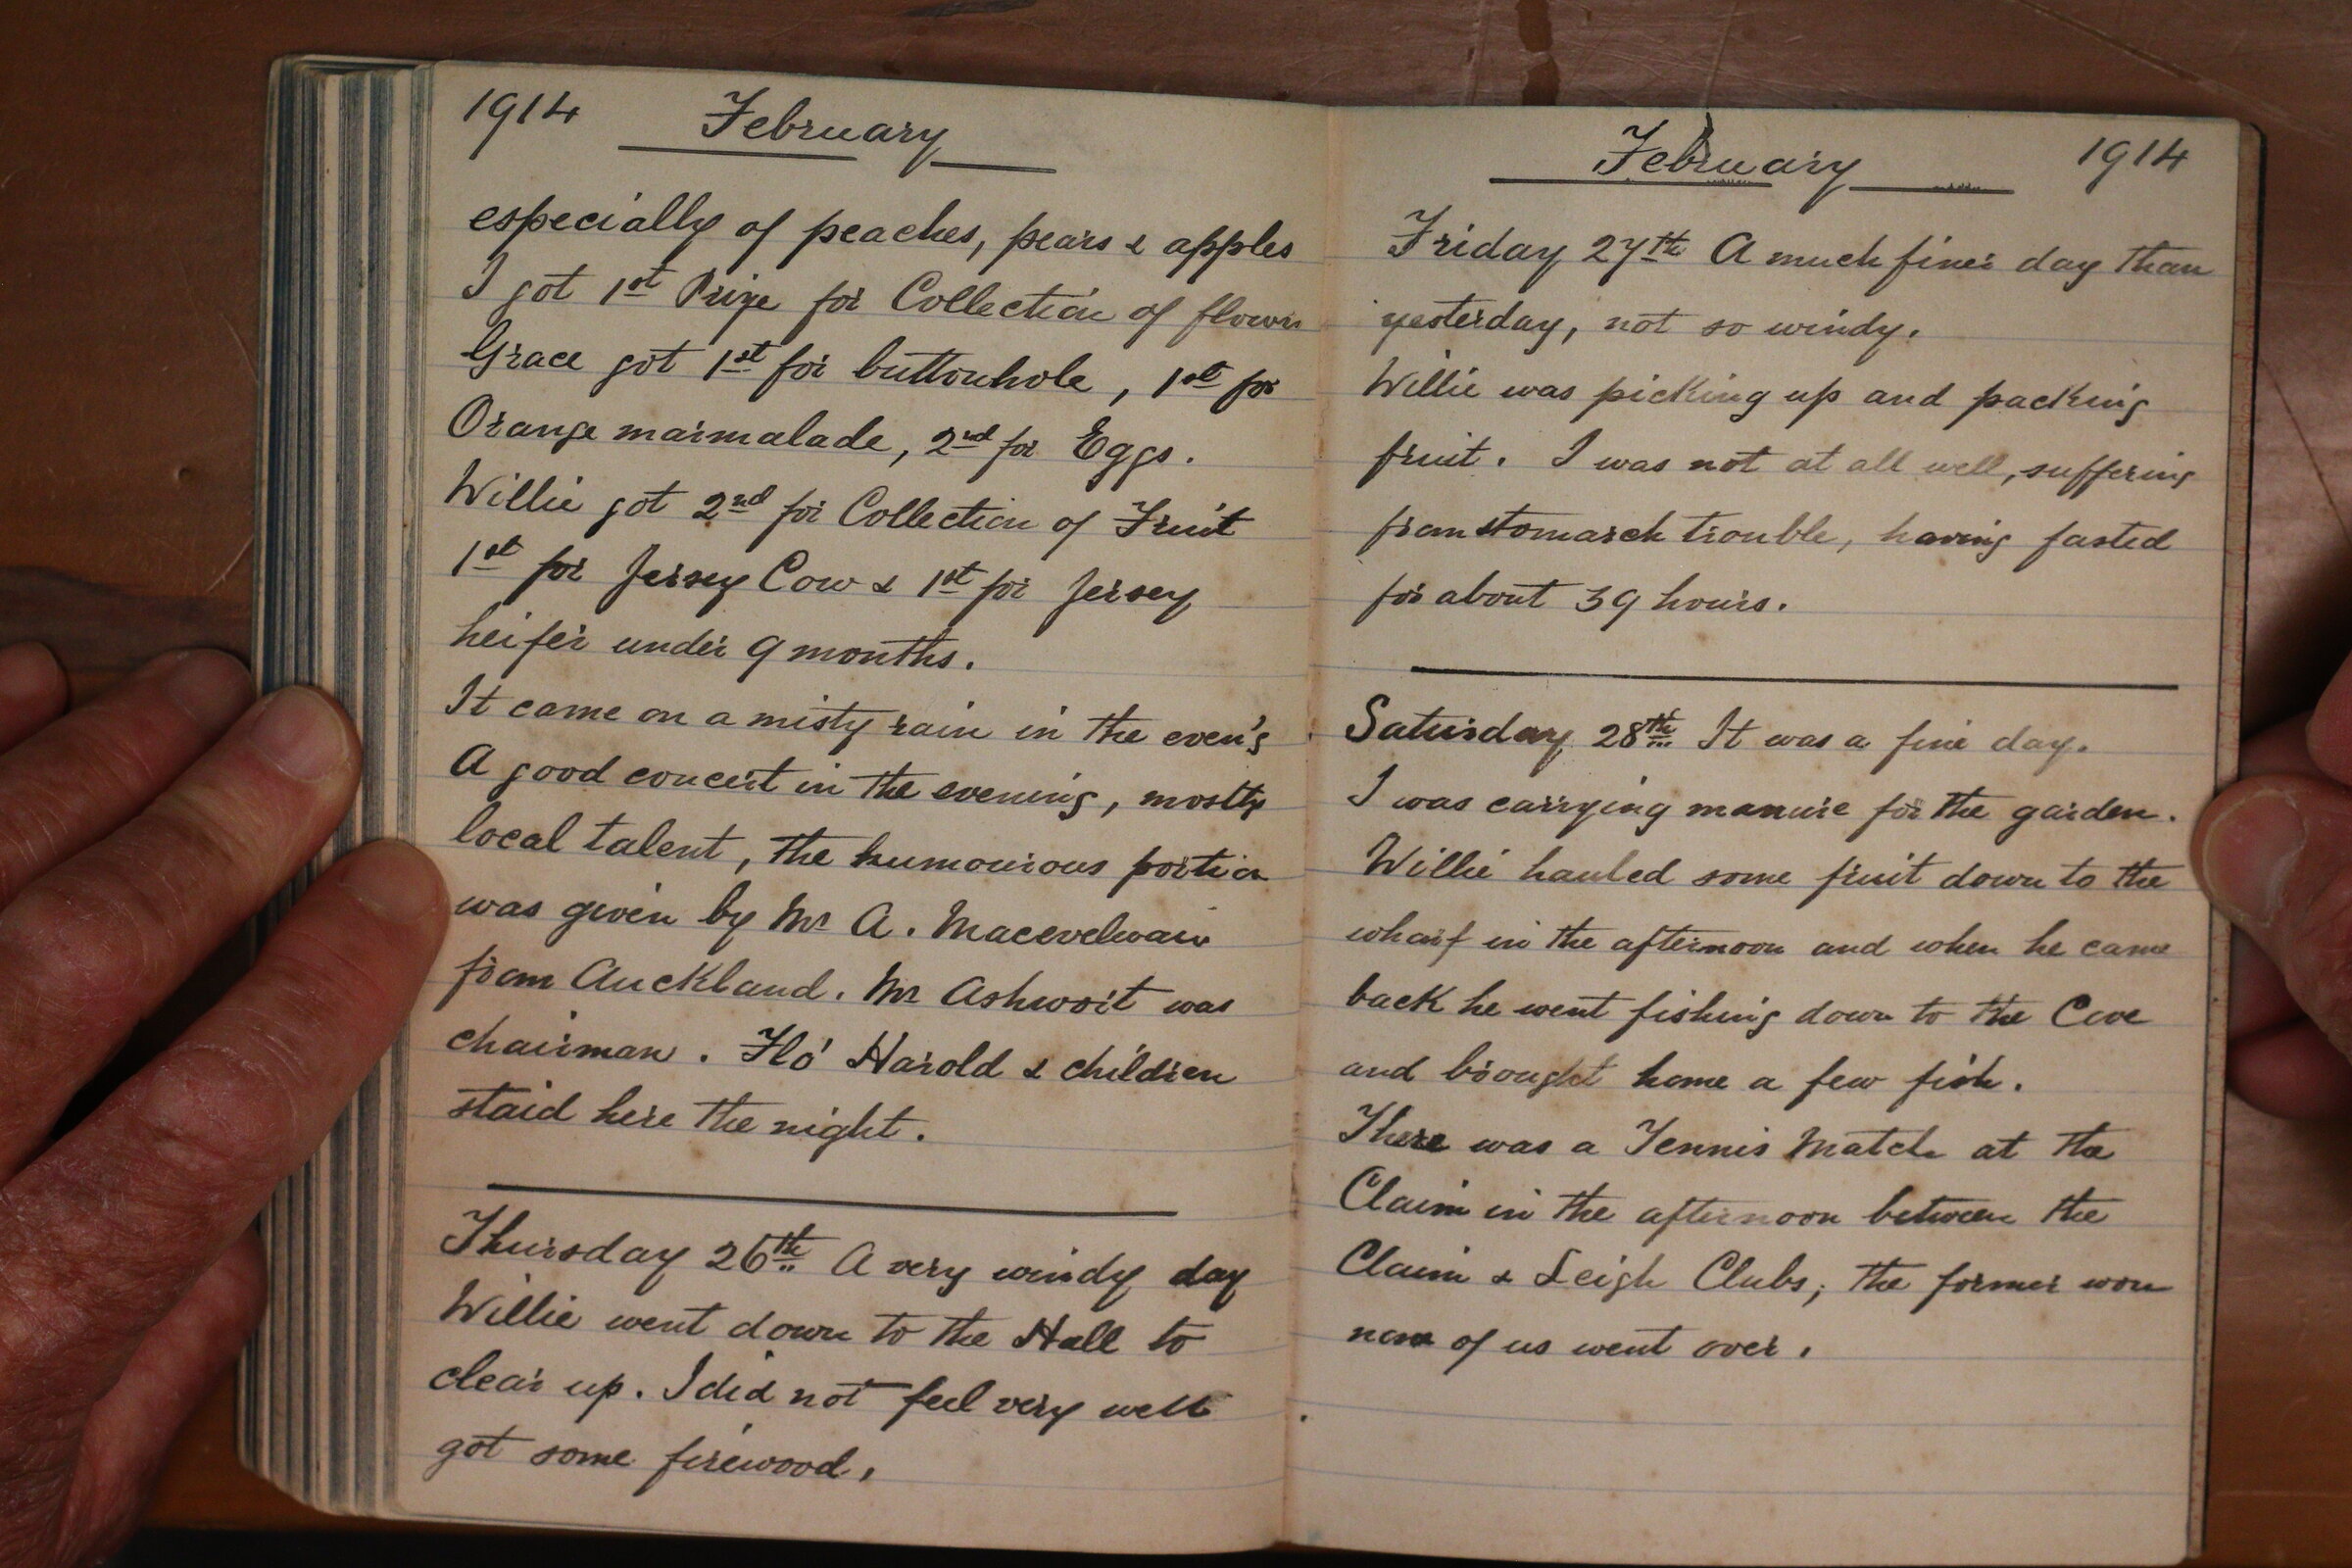 1914 February
especially of peaches, pears & apples
I got 1st Prize for Collection of flowers
Grace got 1st for buttonhole, 1st for
Orange marmalade, 2nd for Eggs.
Willie got 2nd for Collection of Fruit
1st for Jersey Cow & 1st for Jersey
heifer under 9 months.
It came on a misty rain in the even'g
A good concert in the evening, mostly
local talent, the humourous portion
was given by Mr A.
from Auckland. Mr Ashwort was
chairman. Flo' Harold & children
staid here the night.
Thursday 26th A very windy day
Willie went down to the Hall to
clear up. I did not feel very well
got some firewood.
February 1914
Friday 27th A much finer day than
yesterday, not so windy.
Willie was picking up and packing
fruit. I was not at all well, suffering
from stomarch trouble, having fasted
for about 39 hours.
Saturday 28th It was a fine day.
I was carrying manure for the garden.
Willie hauled some fruit down to the
wharf in the afternoon and when he came
back he went fishing down to the Cove
and brought home a few fish.
There was a Tennis Match at the
Claim in the afternoon between the
Claim & Leigh Clubs; the former won
none of us went over.